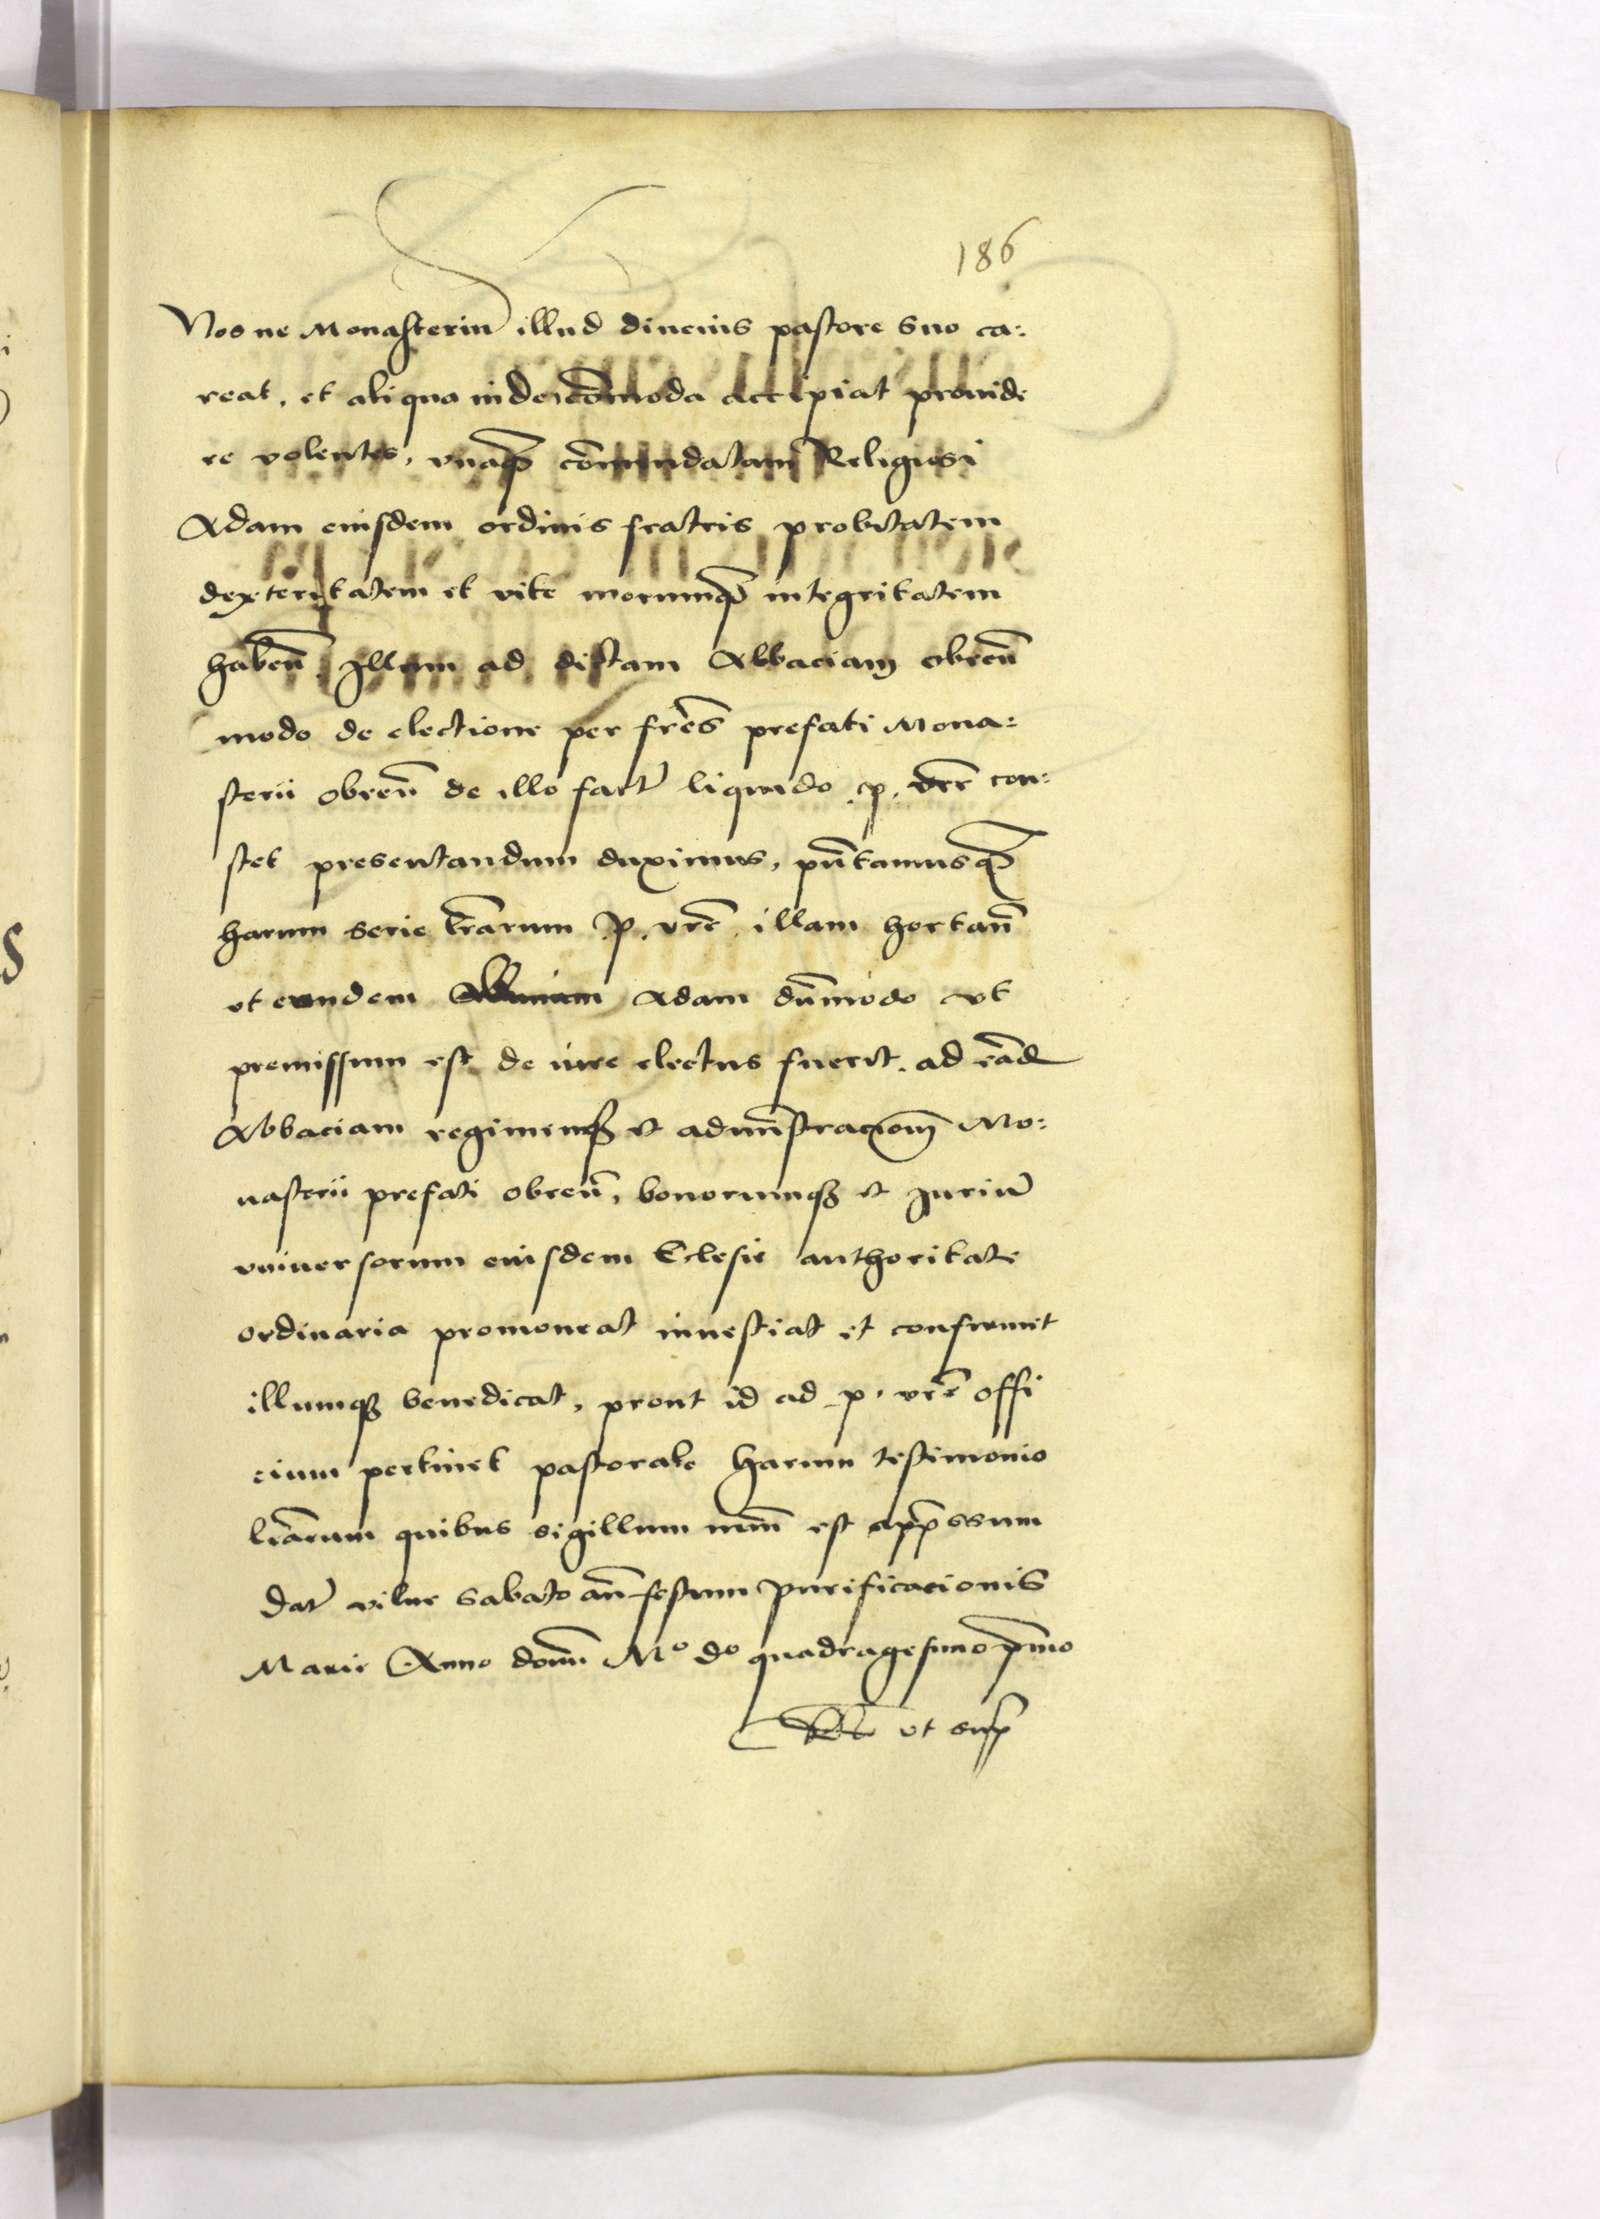 186
Nos ne Monasteriū illud diucius pastore suo ca:
reat, et aliqua inde incōmoda accipiat prouide
re volentes, vnaq̄ cōmendatam Religiosi
Adam eiusdem ordinis fratris probitatem
dexteritatem et vite morumq̄ integritatem
haben̄ Illum ad dictam Abbaciam obren̄
modo de electione per fr̄es prefati Mona:
sterii obren̄ de illo fact̄ liquido .p. vr̄e con:
stet presentandum duximus, pn̄tamusq̄
harum serie lr̄arum .p. vr̄e illam hortan̄
vt eundem Adam dūmodo vt
premissum est de iure electus fuerit. ad eād
Abbaciam regimenq̄ et admīstracionē Mo:
nasterii prefati obren̄, bonorumq̄ et Juriū
vniuersorum eiusdem Eclesie authoritate
ordinaria promoueat inuestiat et confirmet
illumq̄ benedicat, prout id ad .p. vr̄e offi
cium pertinet pastorale harum testimonio
lr̄arum quibus sigillum nr̄m est app̄ssum
Dat̄ vilne sabato an̄ festum purificacionis
Marie Anno domī Mº dº quadragesimo pr̄mo
vt sup̄